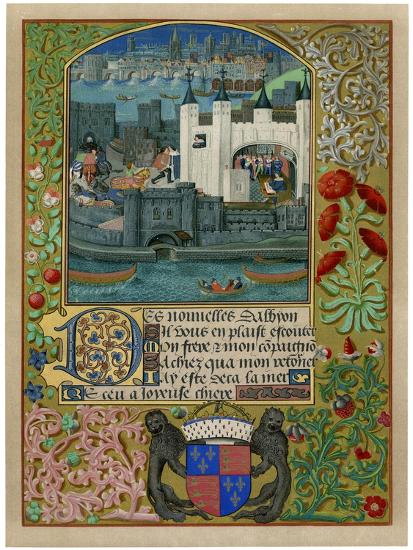 Des nouuelles Dalbyon
Sil vous en plaist escouter
Mon frere & mon cōpaignō
Sachiez qua mon retorner
Iay este deca la mer
Receu a Ioyeuse chiere